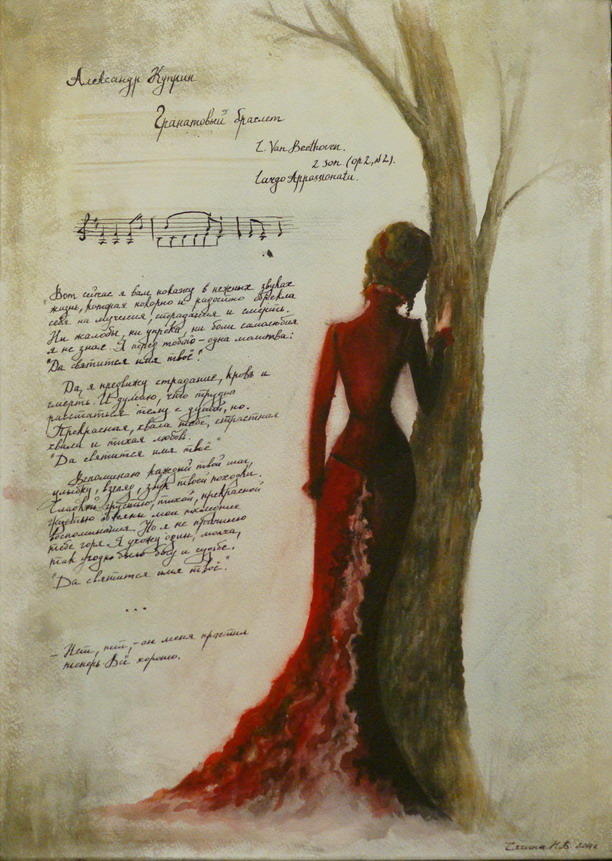 Александр Куприн
Гранатовый браслет
L. Van Beethoven.
2 son. (op. 2, №2).
Largo Appassionata.
Вот сейчас я вам покажу в нежных звуках
жизнь, которая покорно и радостно обрекла
себя на мучения, страдания и смерть.
Ни жалобы, ни упрека, ни боли самолюбия
я не знал. Я перед тобою - одна молитва:
"Да святится имя твоё".
Да, я предвижу страдание, кровь и
смерть. И думаю, что трудно
расстаться телу с душой, но.
Прекрасная, хвала тебе, страстная
хвала и тихая любовь.
"Да святится имя твоё"
Вспоминаю каждый твой шаг,
улыбку, взгляд, звук твоей походки.
Сладкой грустью, тихой, прекрасной
грустью обвеяны мои последние
воспоминания. Но я не причиню
тебе горя. Я ухожу один, молча,
так угодно было богу и судьбе.
"Да святится имя твоё".
...
- Нет, нет, - он меня простил
теперь. Всё хорошо.